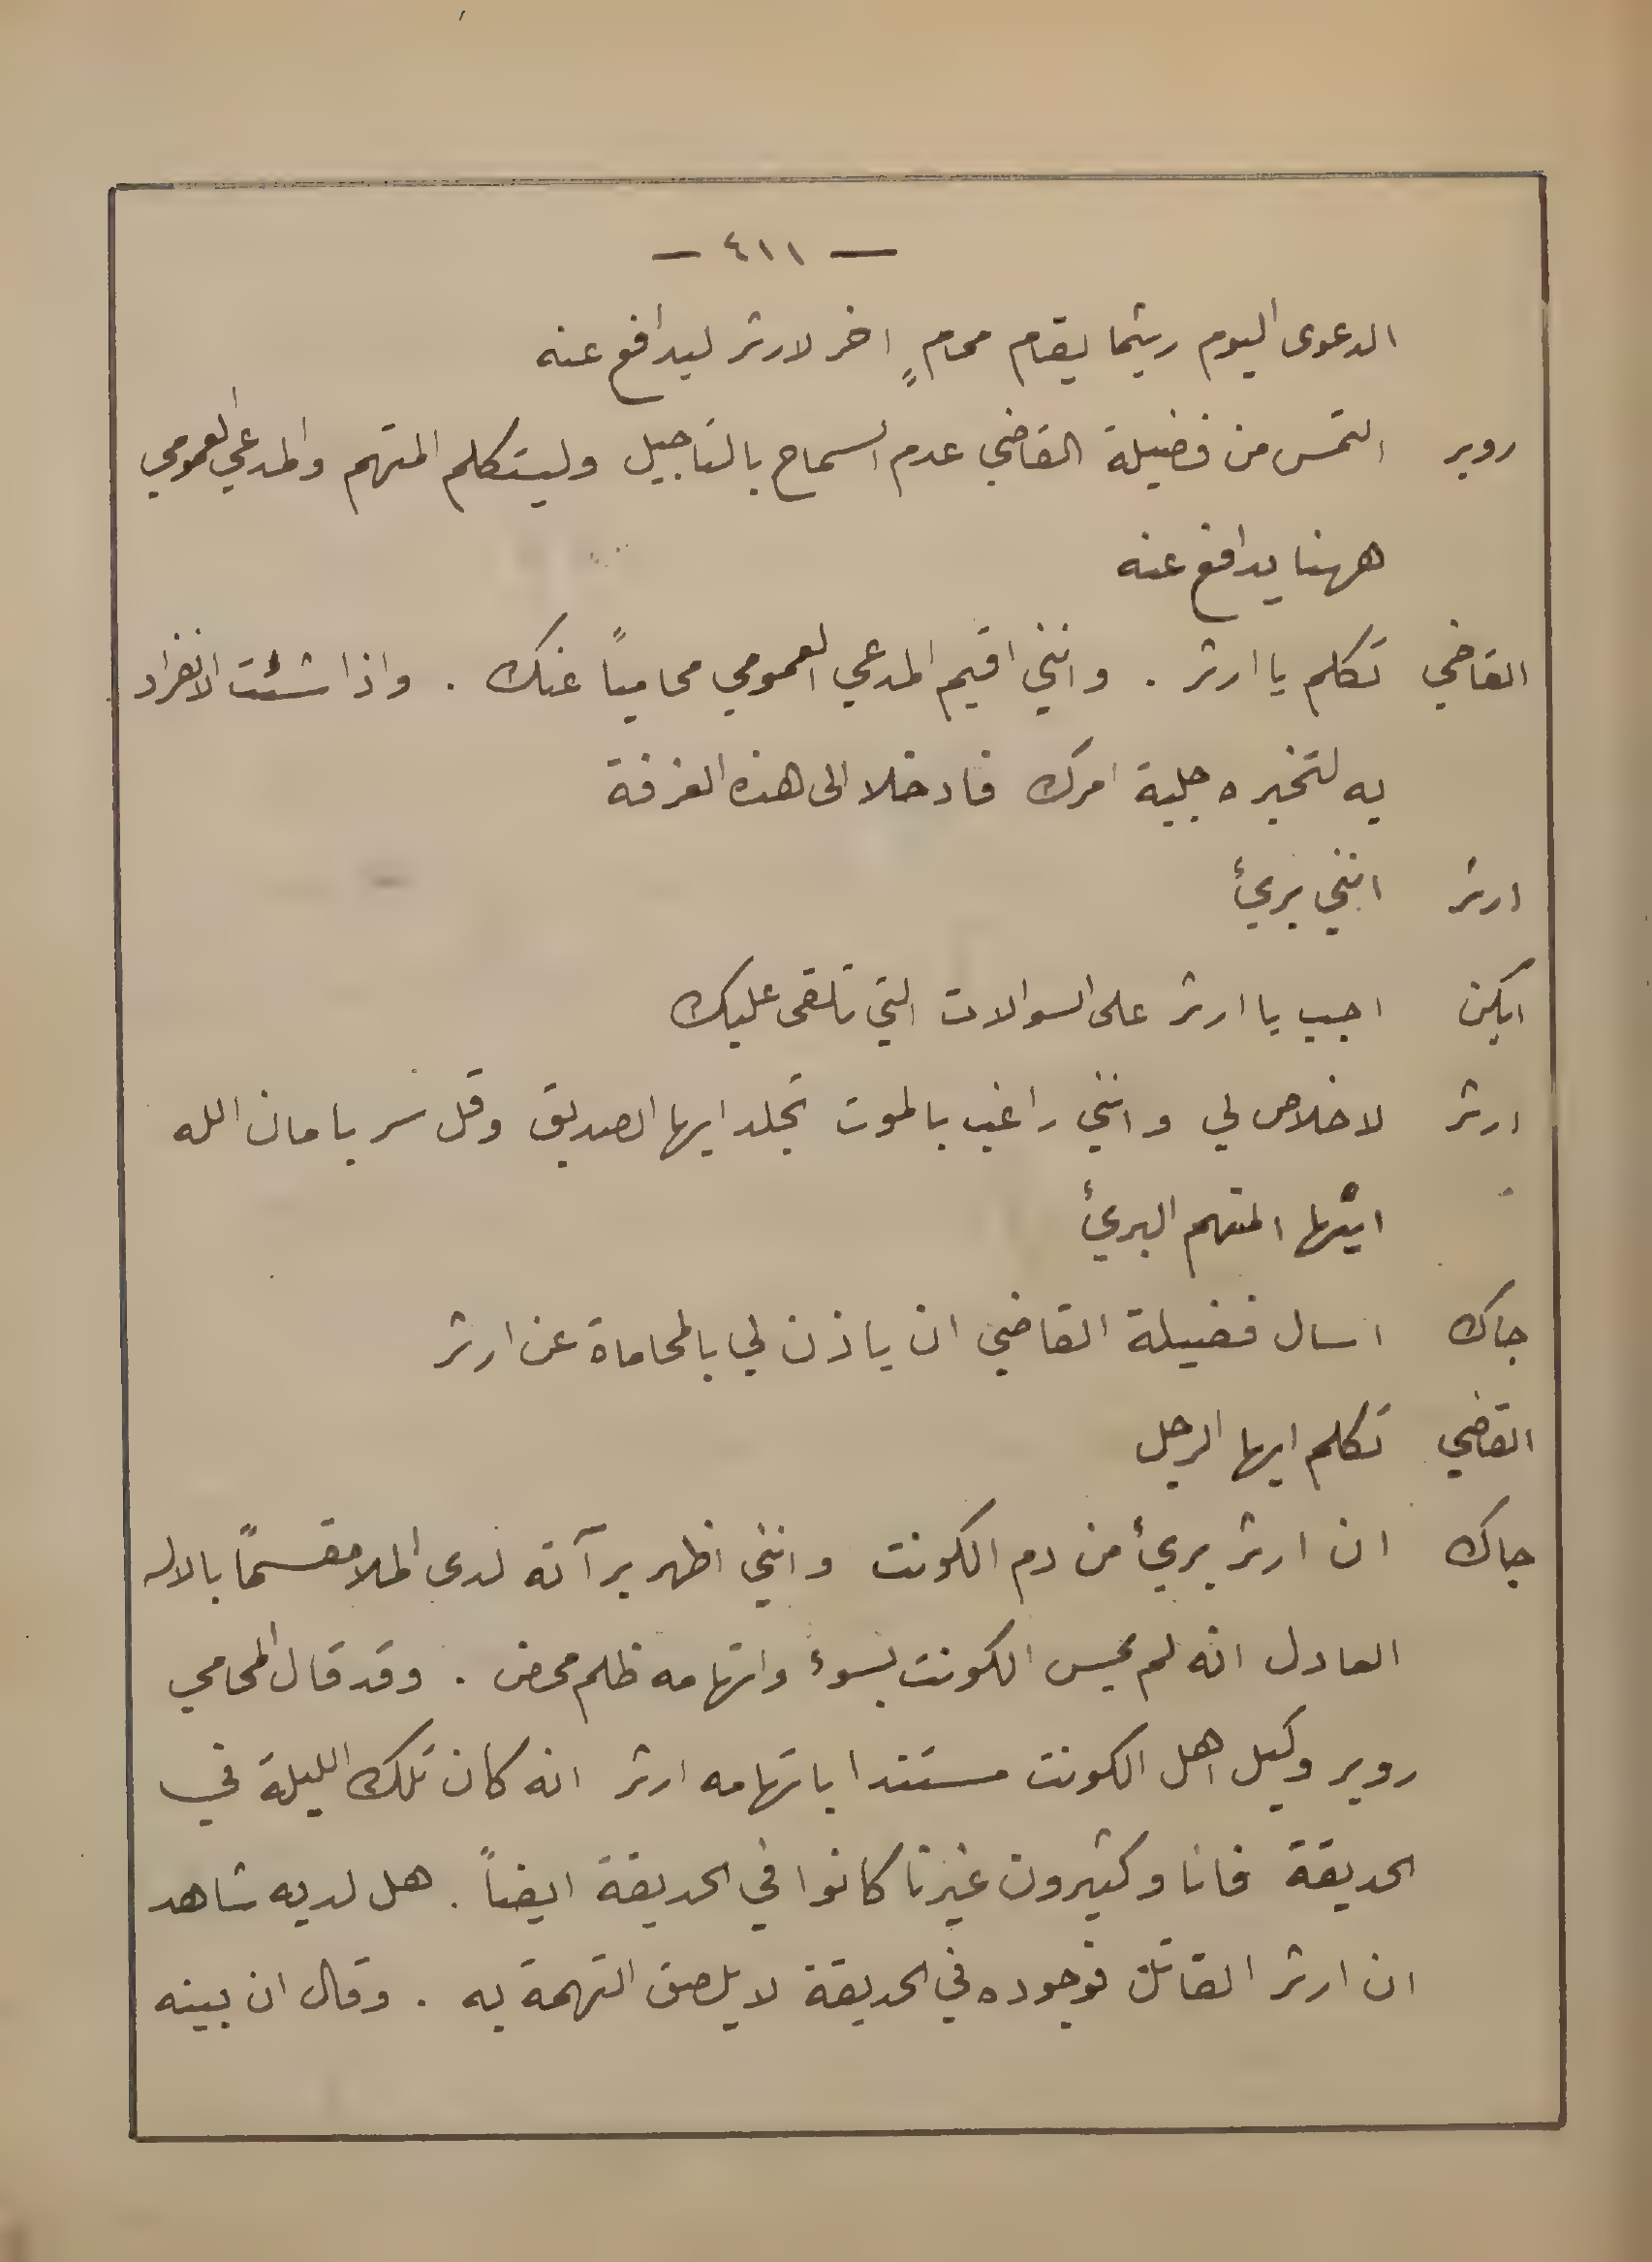 — ٤١١ —
الدعوى اليوم ريثما يقام محامٍ اخر لارثر ليدافع عنه
روبر التمس من فضيلة القاضي عدم السماح بالتاجيل وليتكلم المتهم والمدعي العمومي
ههنا يدافع عنه
القاضي تكلم يا ارثر . وانني اقيم المدعي العمومي محامياً عنك . واذا شئت الانفراد
به لتخبره جلية امرك فادخلا الى هذه الغرفة
ارثر انني بريئ
ايكن اجب يا ارثر على السوالات التي تلقى عليك
ارثر لا خلاص لي وانني راغب بالموت تجلد ايها الصديق وقل سر بامان الله
ايّها المتهم البريئ
جاك اسال فضيلة القاضي ان ياذن لي بالمحاماة عن ارثر
القاضي تكلم ايها الرجل
جاك ان ارثر بريئ من دم الكونت وانني اظهر برآته لدى الملا مقسماً بالاله
العادل انه لم يمس الكونت بسوء واتهامه ظلم محض . وقد قال المحامي
روبر وكيل اهل الكونت مستندا باتهامه ارثر انه كان تلك الليلة في
الحديقة فانا وكثيرون غيرنا كانوا في الحديقة ايضاً . هل لديه شاهد
ان ارثر القاتل فوجوده في الحديقة لا يلصق التهمة به . وقال ان بينه